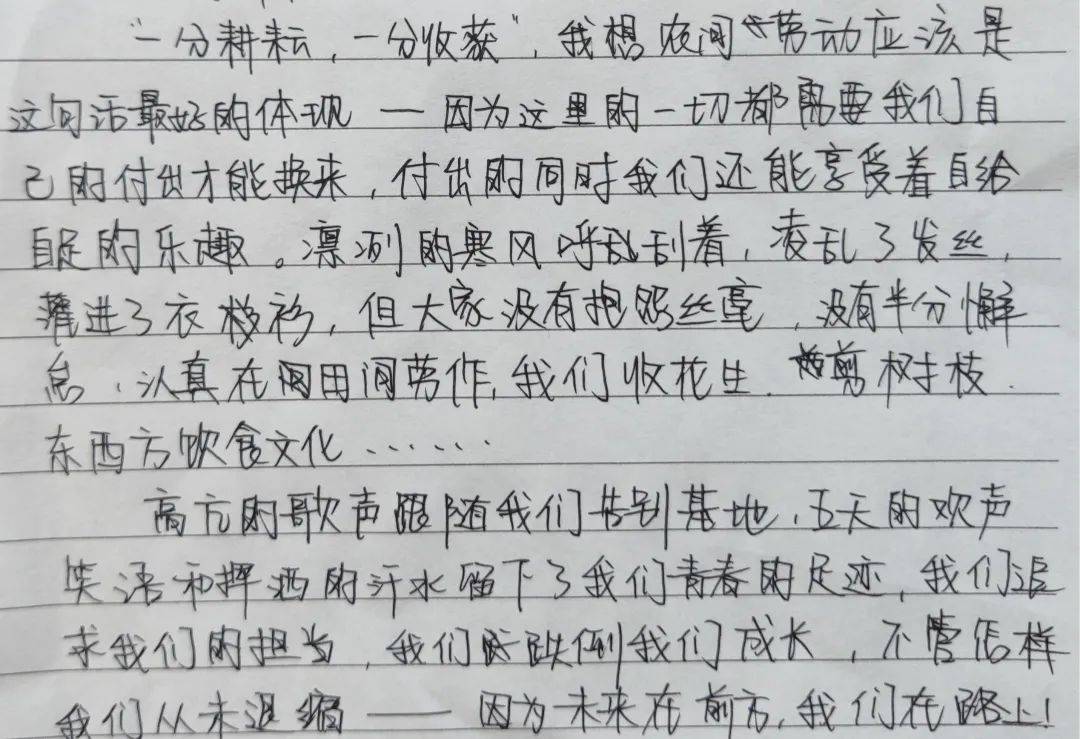 “一分耕耘，一分收获”，我想农间劳动应该是
这句话最好的体现 — 因为这里的一切都需要我们自
己的付出才能换来，付出的同时我们还能享受着自给
自足的乐趣。凛冽的寒风呼乱刮着，凌乱了发丝，
灌进了衣衫，但大家没有抱怨丝毫，没有半分懈
怠，认真在田间劳作，我们收花生、剪树枝、
东西方饮食文化……
高亢的歌声跟随我们告别基地，五天的欢声
笑语和挥洒的汗水留下了我们青春的足迹，我们追
求我们的担当，我们跌倒我们成长，不管怎样
我们从未退缩 —— 因为未来在前方，我们在路上！